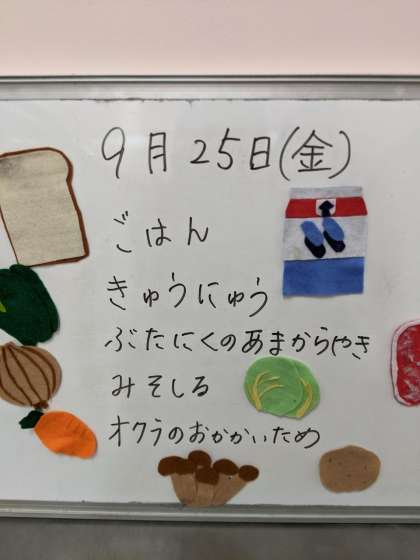 9月25日(金)
ごはん
きゅうにゅう
ぶたにくのあまからやき
みそしる
オクラのおかかいため